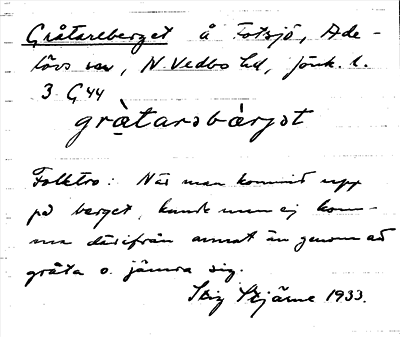 Gråtareberget å Fotsjö, Ade-
lövs sn, N. Vedbo hd, Jönk. l.
3 G 44
grå̀tarəbàrjət
Folktro: När man kommit upp
på berget, kunde man ej kom-
ma därifrån annat än genom att
gråta o. jämra sig.
Stig Stjärne 1933.